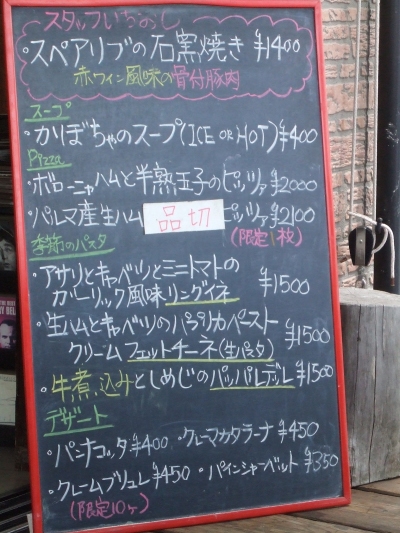 スタッフいちおし
・スペアリブの石窯焼き ¥1400
赤ワイン風味の骨付豚肉
スープ
・かぼちゃのスープ(ICE OR HOT) ¥400
Pizza
・ボローニャハムと半熟玉子のピッツァ ¥2000
・パルマ産生ハム 品切 ピッツァ ¥2100
(限定1枚)
季節のパスタ
・アサリとキャベツとミニトマトの
ガーリック風味リングイネ ¥1500
・生ハムとキャベツのパプリカペースト
クリームフェットチーネ(生パスタ) ¥1500
・牛煮込みとしめじのパッパルデレ ¥1500
デザート
・パンナコッタ ¥400 ・クレーマカタラーナ ¥450
・クレームブリュレ ¥450 ・パインシャーベット ¥350
(限定10ヶ)